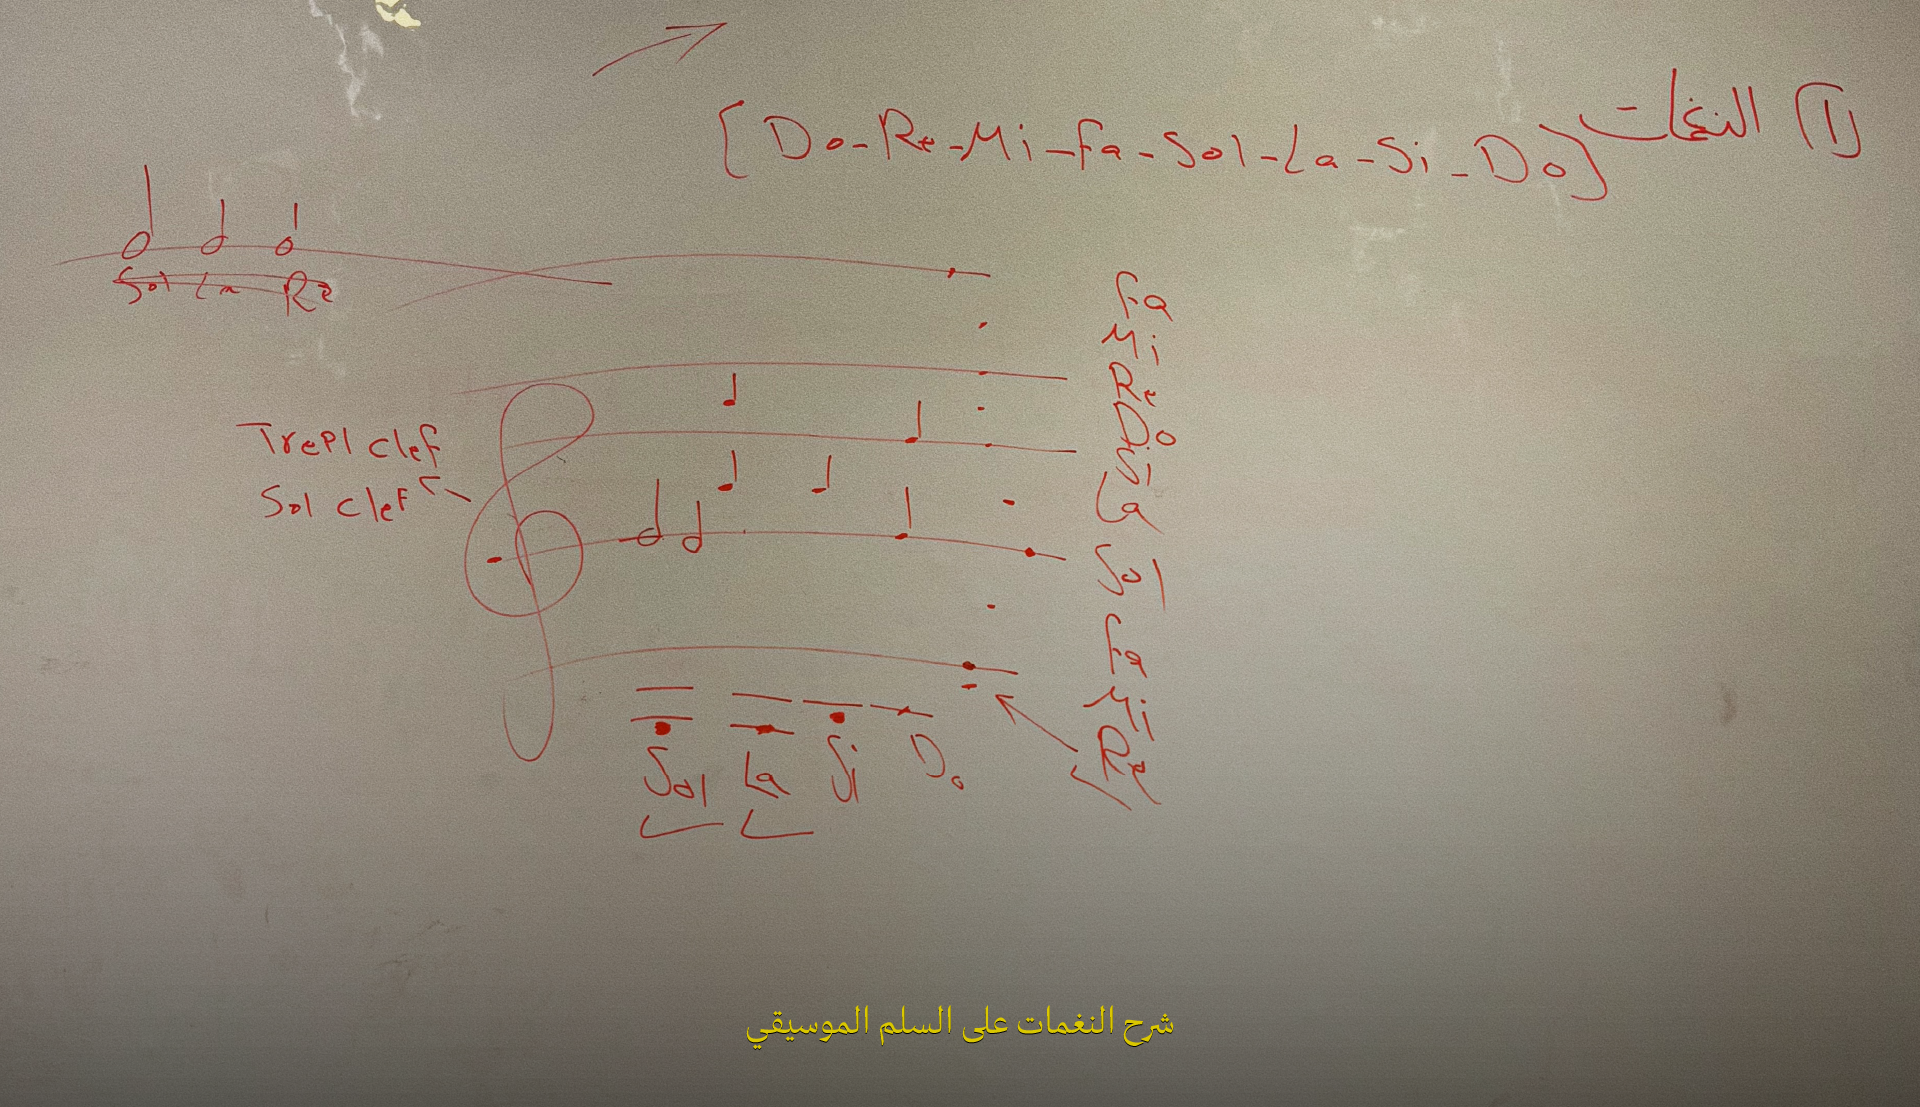 (1) النغمات [Do-Re-Mi-Fa-Sol-La-Si-Do]
Sol La Re
Trepl clef
Sol clef
Fa
Mi
Re
Do
Si
La
Sol
Fa
Mi
Re
Sol La Si Do
شرح النغمات على السلم الموسيقي